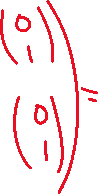 (0
1)
(0
1)) =